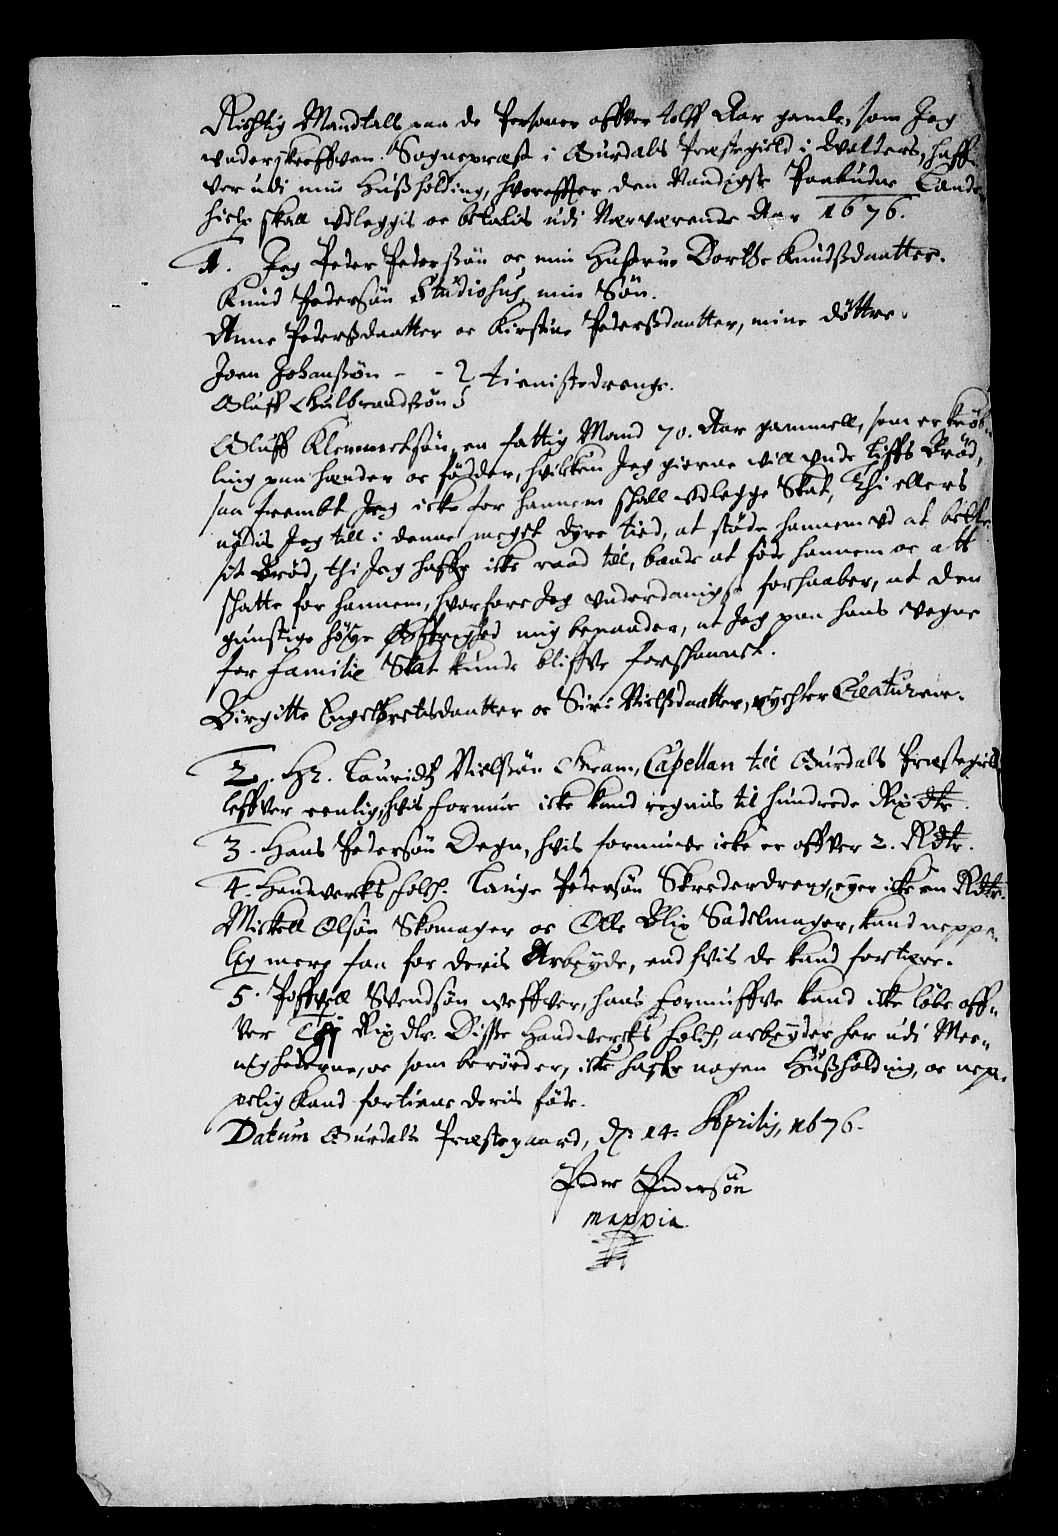 Richtig Mandtall paa de Personer offver tolff Aar gamle, som Jeg
underskreffven Sognepræst i Ourdals Præstegield i Walders, haff¬
ver udi min Hußholding, hvoreffter den Naadigste Paabudne Lande
hielp skall udleggis oc betalis udi Nærværende Aar 1676.
1. Jeg Peder Pederßøn oc min Hustrue Dorthe Knudßdaatter.
Knud Pedersøn Studiosus min Søn.
Anne Pederßdaatter oc Kirstine Pederßdaatter, mine døttre.
Joen Johanßøn - - 2 tienistedrenge.
Oluff Gulbrandßøn
Oluff Klemmetsøn, en fattig Mand 70. Aar gammell, som er krøb¬
ling paa hænder oc fødder, hvilken Jeg gierne will unde Liffs Brød,
saa frembt Jeg icke for hannem skall udlegge Skat, Thi ellers
nødis Jeg till i denne meget dyre tied, at støde hannem ud at bettle
sit Brød, thi Jeg haffr icke raad till, baade at føde hannem oc att
skatte for hannem, hvorfore Jeg underdanigst forhaaber, at den
gunstige høye Øffrighed mig benaader, at Jeg paa hans vegne
for familie Skat kunde bliffve forskaanet.
Birgitte Engelbretsdaatter oc Siri Nielßdaatter, Creaturene.
2. Hr. Lauridtz Nielßøn Gram, Capellan till Ourdals Præstegield
leffver eenlig, hvis formue icke kand regnis til hundrede Rix dlr.
3. Hans Pedersøn Degn, hvis formue icke er offver 2. Rdlr.
4. Handverchs folch. Lauge Pedersøn Skrederdreng, eyer icke en Rdlr.
Mickell Olsøn Skomager oc Olle Blix Sadelmager, kand neppe¬
lig mere faa for deris Arbeyde, end hvis de kand fortiere.
5. Poffvell Svendsøn weffver, hans formuffve kand icke løbe off¬
ver Rix dlr. Disse Handverchs folch, arbeyder her udi Mee¬
nighederne, oc som berørder, icke haffr nogen Hußholding, oc nep¬
pelig kand fortiene deris føde.
Datum Ourdals Præstegaard, d. 14. Aprilis, 1676.
Peder Pedersøn
mappia